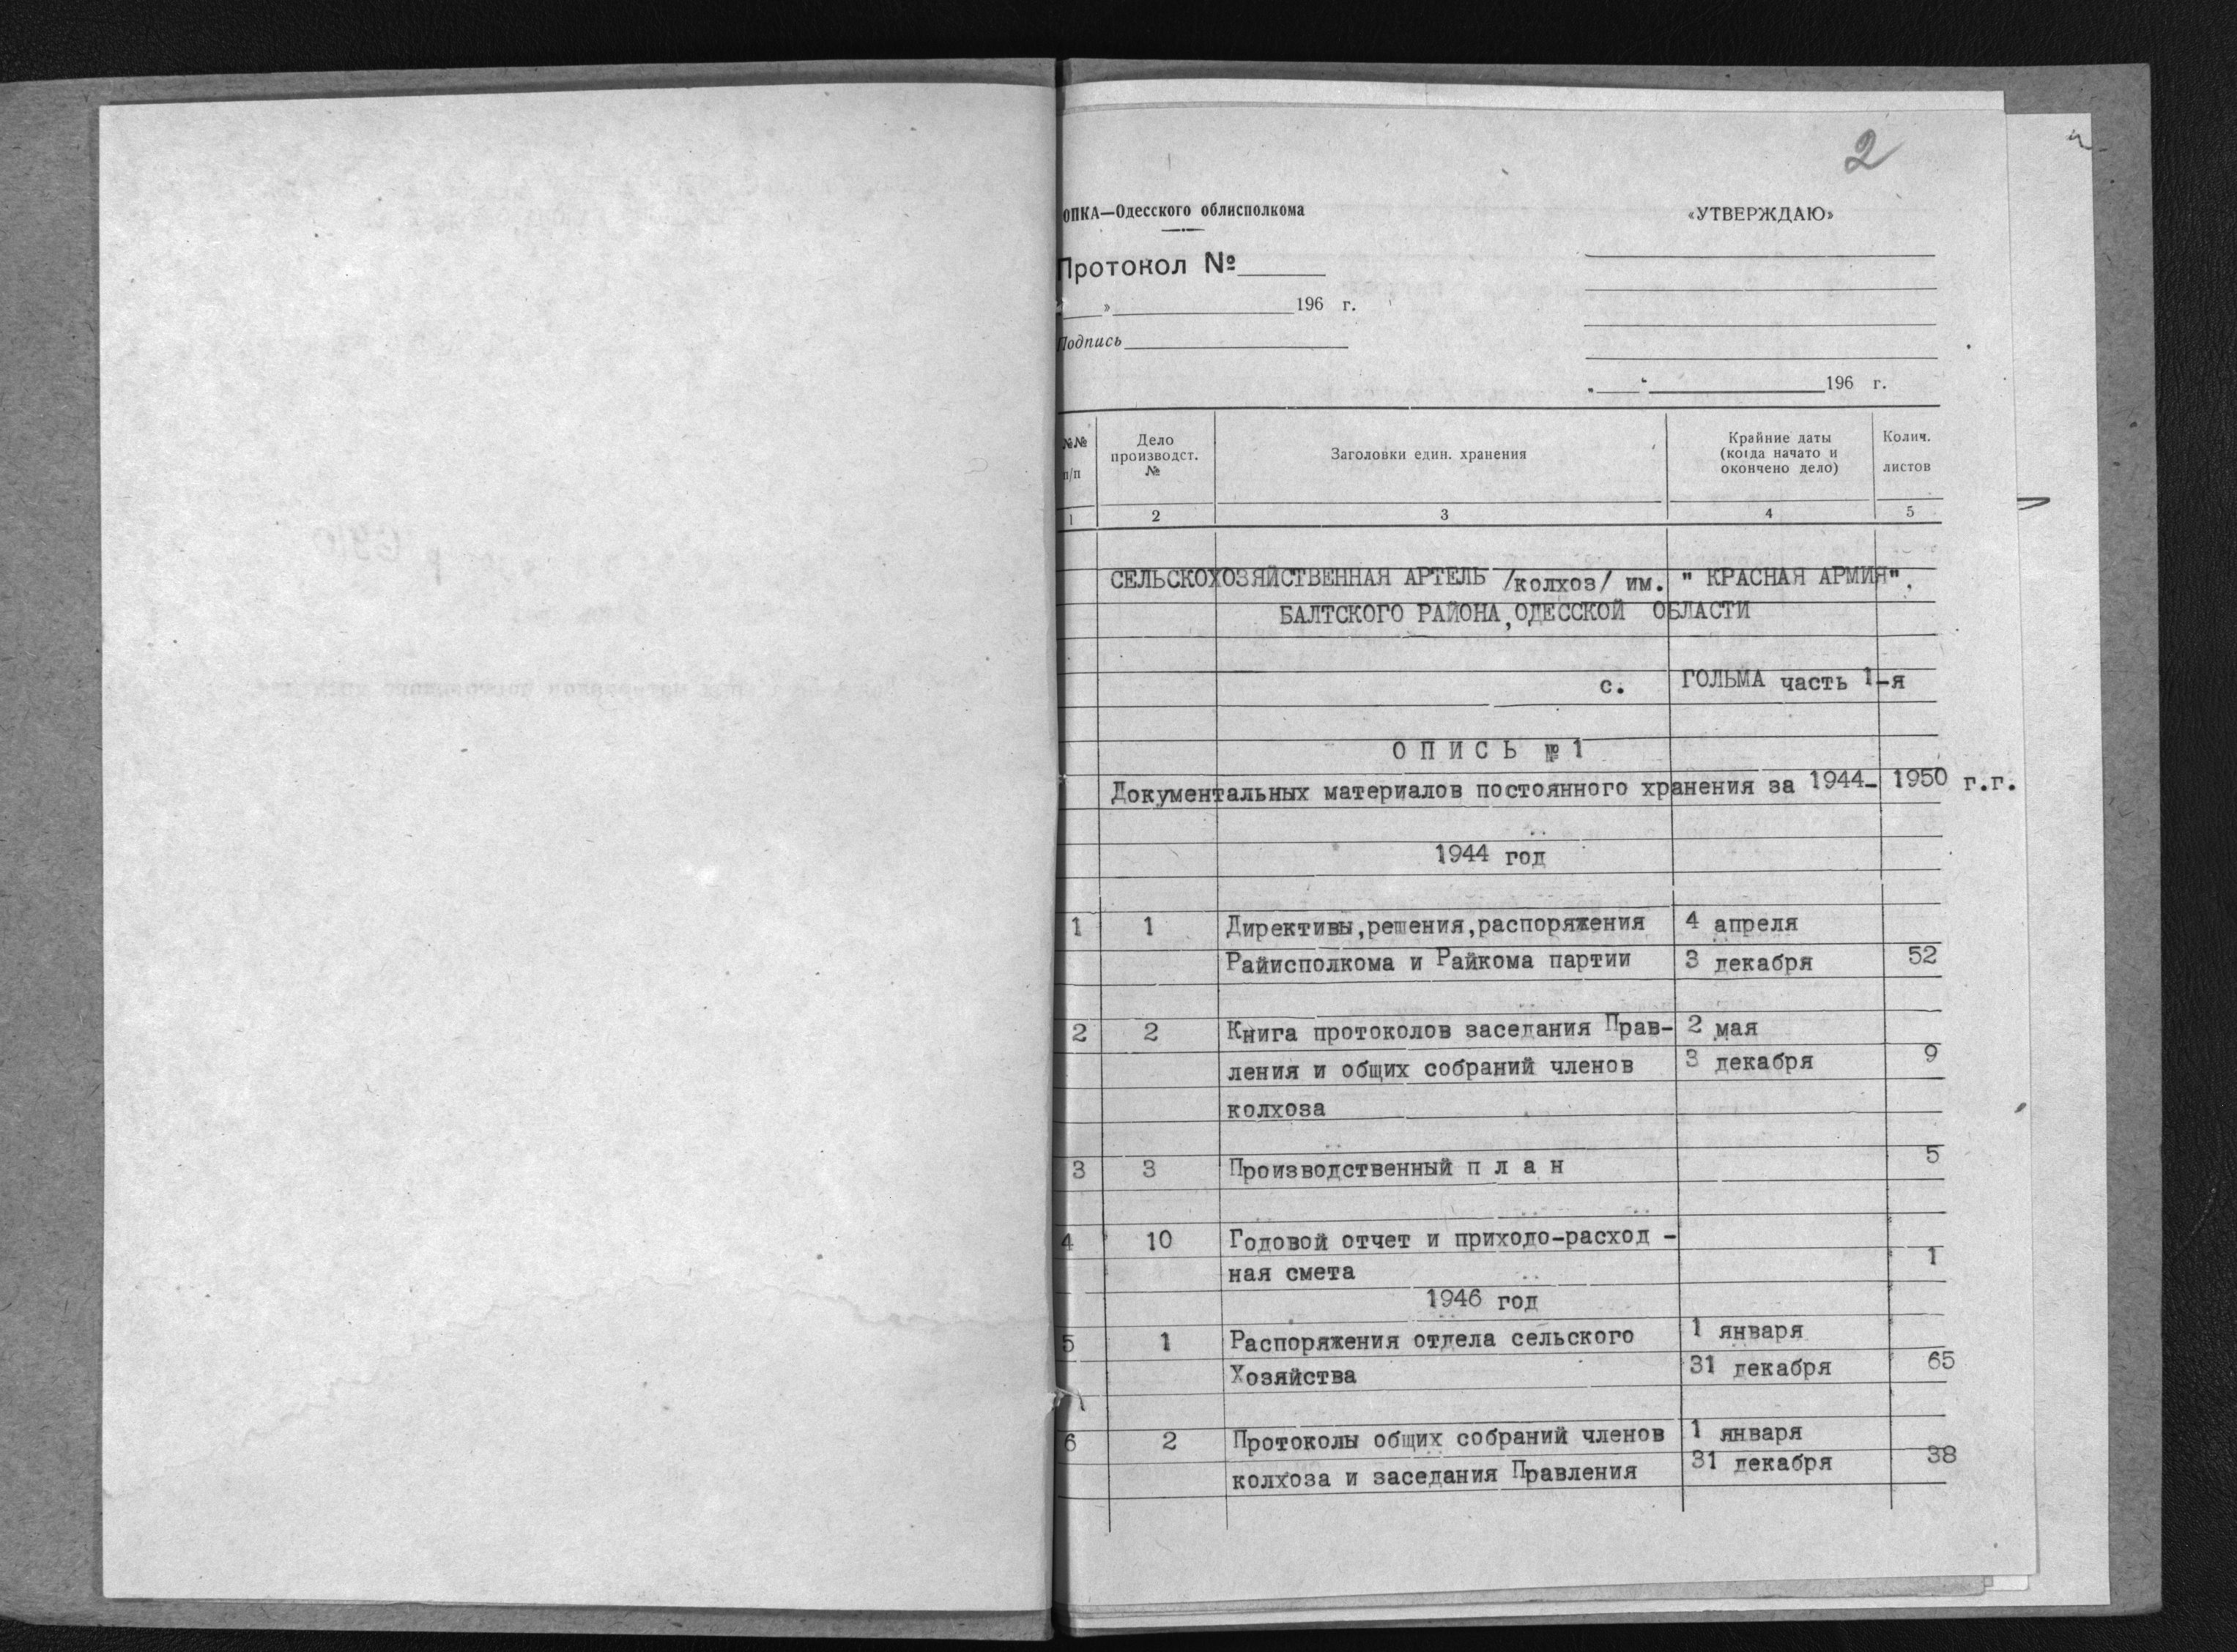 2
ОПКА—Одесского облисполкома
«УТВЕРЖДАЮ»
Протокол №
» 196 г.
Подпись
196 г.
№№ п/п
Дело производст. №
Заголовки един. хранения
Крайние даты (когда начато и окончено дело)
Колич. листов
1 2 3 4 5
СЕЛЬСКОХОЗЯЙСТВЕННАЯ АРТЕЛЬ /колхоз/ им. " КРАСНАЯ АРМИЯ",
БАЛТСКОГО РАЙОНА,ОДЕССКОЙ ОБЛАСТИ
с. ГОЛЬМА часть 1-я
О П И С Ь № 1
Документальных материалов постоянного хранения за 1944- 1950 г.г.
1944 год
1 1 Директивы,решения,распоряжения 4 апреля
Райисполкома и Райкома партии 3 декабря 52
2 2 Книга протоколов заседания Прав- 2 мая
ления и общих собраний членов 3 декабря 9
колхоза
3 3 Производственный п л а н 5
4 10 Годовой отчет и приходо-расход -
ная смета 1
1946 год
5 1 Распоряжения отдела сельского 1 января
Хозяйства 31 декабря 65
6 2 Протоколы общих собраний членов 1 января
колхоза и заседания Правления 31 декабря 38